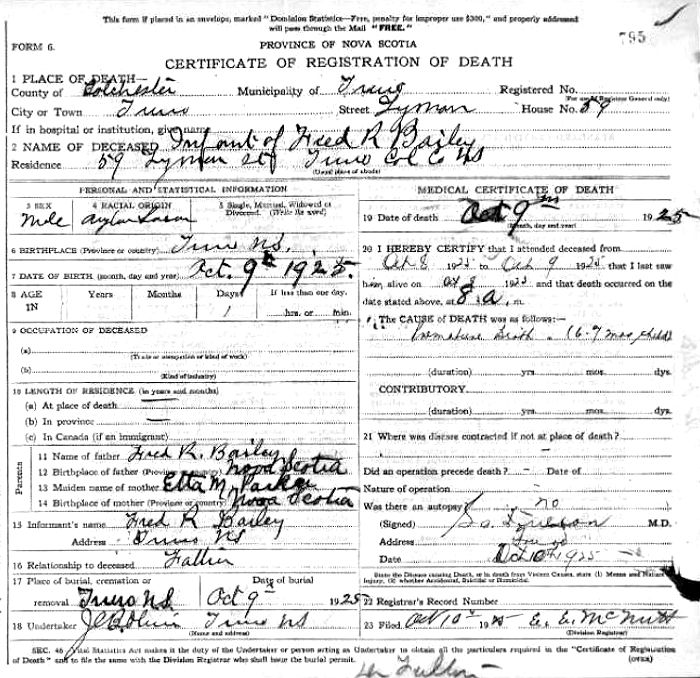 This form if placed in an envelope, marked "Dominion Statistics—Free, penalty for improper use $300," and properly addressed
will pass through the Mail "FREE."
795
FORM 6.
PROVINCE OF NOVA SCOTIA
CERTIFICATE OF REGISTRATION OF DEATH
1 PLACE OF DEATH—
County of Colchester Municipality of Truro Registered No.
(For use of Registrar General only)
City or Town Truro Street Lyman House No. 59
If in hospital or institution, give name
2 NAME OF DECEASED Infant of Fred R Bailey
Residence 59 Lyman St Truro Col Co NS
(Usual place of abode)
PERSONAL AND STATISTICAL INFORMATION
3 SEX 4 RACIAL ORIGIN 5 Single, Married, Widowed or Divorced. (Write the word)
Male Anglo Saxon
6 BIRTHPLACE (Province or country) Truro NS.
7 DATE OF BIRTH (month, day and year) Oct. 9th 1925.
8 AGE IN Years Months Days If less than one day.
1 hrs. or min.
9 OCCUPATION OF DECEASED
(a) (Trade or occupation or kind of work)
(b) (Kind of industry)
10 LENGTH OF RESIDENCE (in years and months)
(a) At place of death
(b) In province —
(c) In Canada (if an immigrant)
Parents
11 Name of father Fred R. Bailey
12 Birthplace of father (Province or country) Nova Scotia
13 Maiden name of mother Etta M. Parker
14 Birthplace of mother (Province or country) Nova Scotia
15 Informant's name Fred R Bailey
Address Truro NS
16 Relationship to deceased Father
17 Place of burial, cremation or Date of burial
removal Truro NS Oct 9th 1925
18 Undertaker Truro NS
(Name and address)
MEDICAL CERTIFICATE OF DEATH
19 Date of death Oct 9th 1925
(Month, day and year)
20 I HEREBY CERTIFY that I attended deceased from
Oct 8 1925 to Oct 9 1925 that I last saw
h alive on Oct 1925 and that death occurred on the
date stated above, at 8 a. m.
The CAUSE OF DEATH was as follows:—
Premature Birth. (6-7 mos child)
(duration) yrs. mos. dys.
CONTRIBUTORY
(duration) yrs. mos. dys.
21 Where was disease contracted if not at place of death?
Did an operation precede death? - Date of
Nature of operation
Was there an autopsy? no
(Signed) M.D.
Address Truro
Date Oct 10th 1925
State the Disease causing Death, or in death from Violent Causes, state (1) Means and Nature of
Injury, (2) whether Accidental, Suicidal or Homicidal.
22 Registrar's Record Number
23 Filed Oct 10th 1925 E. E. McNutt
(Division Registrar)
SEC. 46 Vital Statistics Act makes it the duty of the Undertaker or person acting as Undertaker to obtain all the particulars required in the "Certificate of Registration
of Death" and to file the same with the Division Registrar who shall issue the burial permit. (OVER)